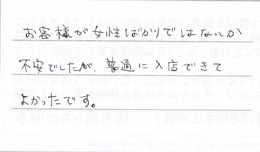 お客様が女性ばかりではないか
不安でしたが、普通に入店できて
よかったです。